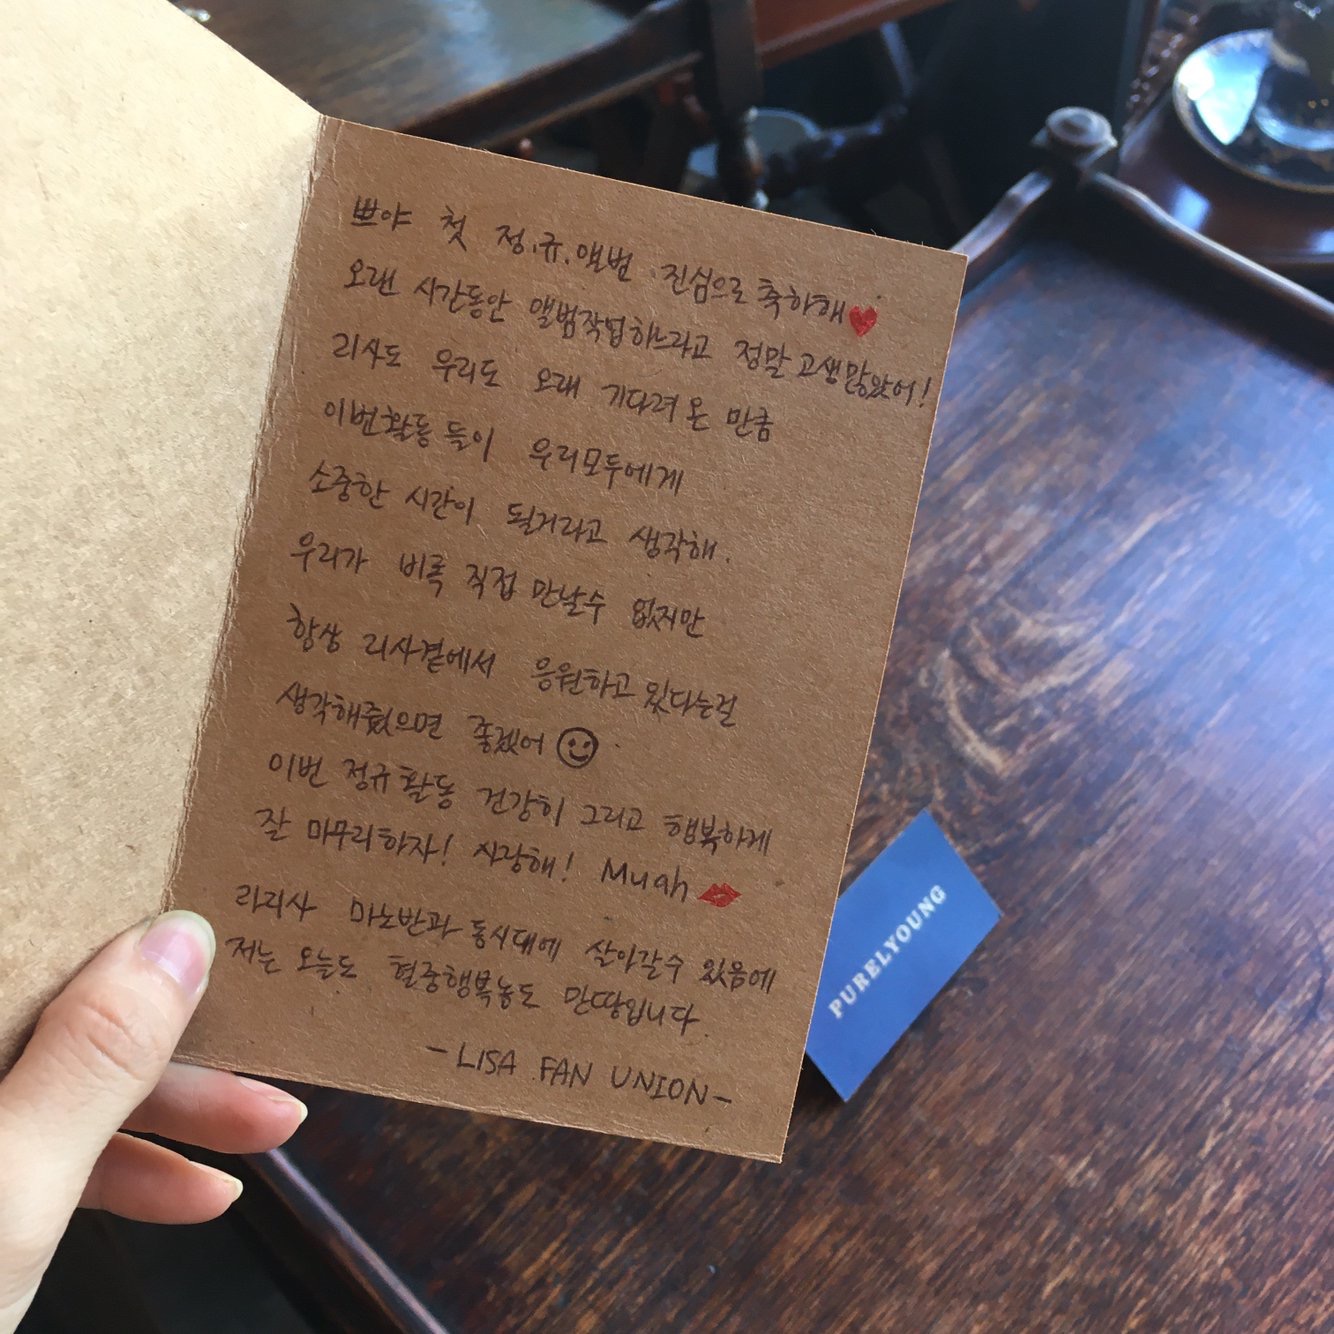 쁘야 첫 정.규.앨범 진심으로 축하해
오랜 시간동안 앨범작업하느라고 정말 고생많았어!
리사도 우리도 오래 기다려 온 만큼
이번활동들이 우리모두에게
소중한 시간이 될거라고 생각해.
우리가 비록 직접 만날수 없지만
항상 리사곁에서 응원하고 있다는걸
생각해줬으면 좋겠어
이번 정규활동 건강히 그리고 행복하게
잘 마무리하자! 사랑해! Muah
라리사 마노반과 동시대에 살아갈수 있음에
저는 오늘도 혈중행복농도 만땅입니다.
-LISA FAN UNION-
PURELYOUNG